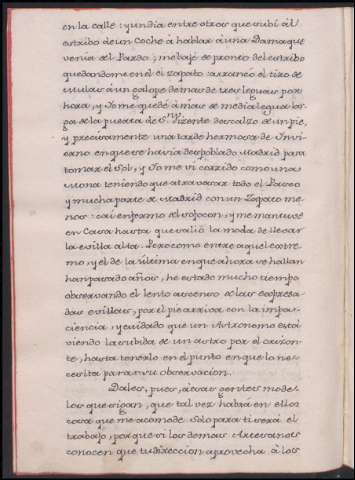 en la calle: y un dia entre otros que subí ál
estribo de un Coche á hablar á una Dama que
venia del Pardo; me bajé de pronto del estribo
quedandome en el el Zapato: arrancó el tiro de
mulas á un galope de mas de tres leguas por
hora, y Yo me quedé á mas de media legua lar-
ga de la puerta de Sn. Vizente descalzo de un pie,
y precisamente una tarde hermosa de Invi-
erno en que se havia despoblado Madrid para
tomar el Sol, y Yo me vi corrido como una
Mona teniendo que atravesar todo el Paseo
y mucha parte de Madrid con un Zapato me-
nos: caí enfermo del sofocon, y me mantuve
en Casa hasta que salió la moda de llevar
la evilla alta. Pero como entre aquel extre-
mo, y el de la última en que ahora se hallan
han pasado años, he estado mucho tiempo
observando el lento ascenso de las expresa-
das evillas, por el pie arriva con la impa-
ciencia, y cuidado que un Astronomo está
viendo la subida de un astro por el orizon-
te, hasta tenerlo en el punto en que lo ne-
cesita para su observacion.
Dales, pues, á esas gentes mode-
los que sigan, que tal vez habrá en ellos
cosa que me acomode. Solo para ti será el
trabajo, porque si los demas Artesanos
conocen que tu direccion aprovecha á los